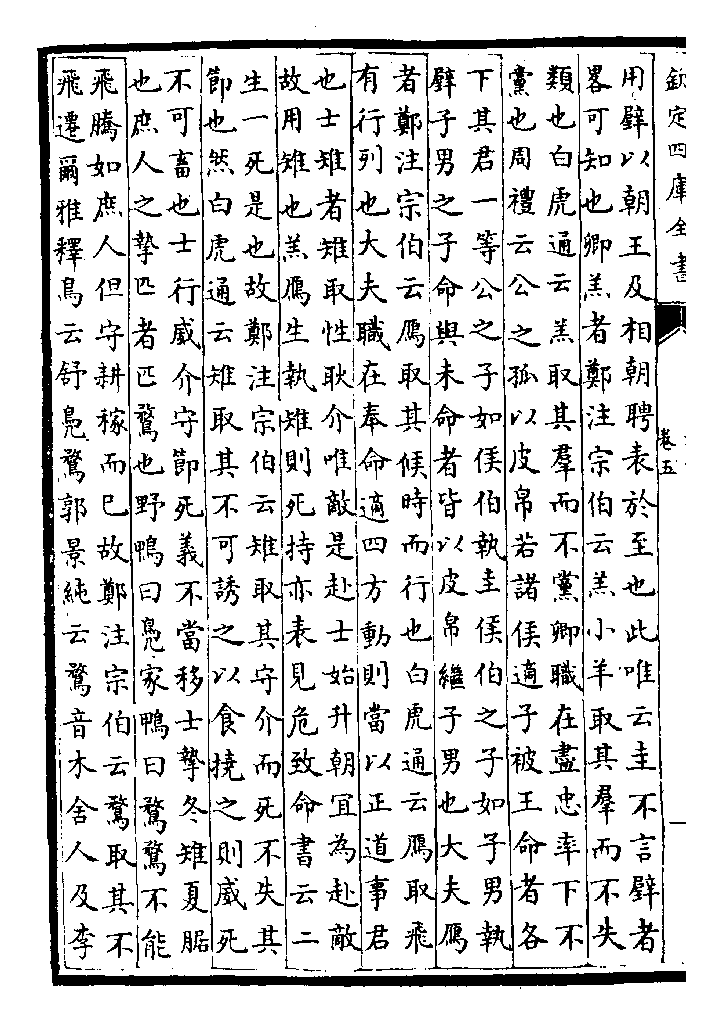 欽定四庫全書
卷五
用璧以朝王及相朝聘表於至也此唯云圭不言璧者
畧可知也卿羔者鄭注宗伯云羔小羊取其羣而不失
類也白虎通云羔取其羣而不黨卿職在盡忠率下不
黨也周禮云公之孤以皮帛若諸侯適子被王命者各
下其君一等公之子如侯伯執圭侯伯之子如子男執
璧子男之子命與未命者皆以皮帛繼子男也大夫鴈
者鄭注宗伯云鴈取其候時而行也白虎通云鴈取飛
有行列也大夫職在奉命適四方動則當以正道事君
也士雉者雉取性耿介唯敵是赴士始升朝宜為赴敵
故用雉也羔鴈生執雉則死持亦表見危致命書云二
生一死是也故鄭注宗伯云雉取其守介而死不失其
節也然白虎通云雉取其不可誘之以食撓之則威死
不可畜也士行威介守節死義不當移士摯冬雉夏腒
也庶人之摯匹者匹鶩也野鴨曰鳧家鴨曰鶩鶩不能
飛騰如庶人但守耕稼而已故鄭注宗伯云鶩取其不
飛遷爾雅釋鳥云舒鳧鶩郭景純云鶩音木舍人及李